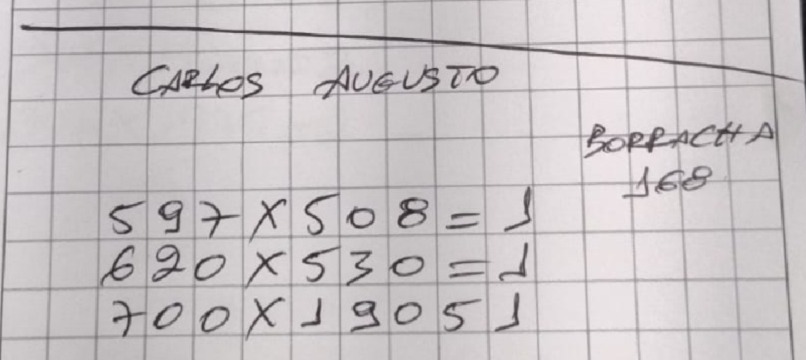 CARLOS AUGUSTO
BORRACHA
168
597X508=1
620X530=1
700X19051